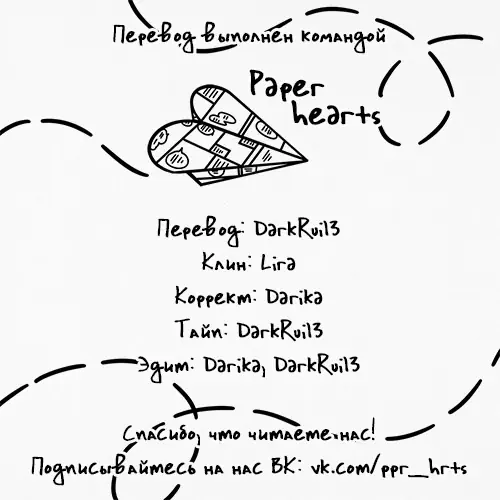 Перевод выполнен командой
Paper
hearts
Перевод: DarkRui13
Клин: Lira
Коррект: Darika
Тайп: DarkRui13
Эдит: Darika, DarkRui13
Спасибо, что читаете нас!
Подписывайтесь на нас ВК: vk.com/ppr_hrts